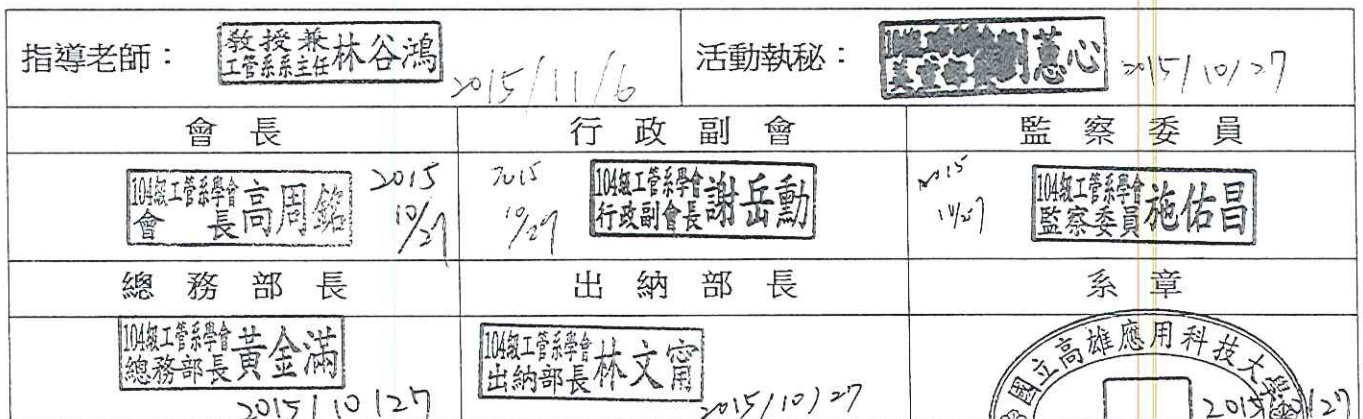 指導老師：
教授兼
工管系系主任 林谷鴻
2015/11/6
活動執秘：
劉蕙心
2015/10/27
會長
行政副會
監察委員
104級工管系學會
會長 高周銘
2015
10/27
2015
10/27
104級工管系學會
行政副會長 謝岳勳
2015
10/27
104級工管系學會
監察委員 施佑昌
總務部長
出納部長
系章
104級工管系學會
總務部長 黃金滿
2015/10/27
104級工管系學會
出納部長 林文甯
2015/10/27
國立高雄應用科技大學